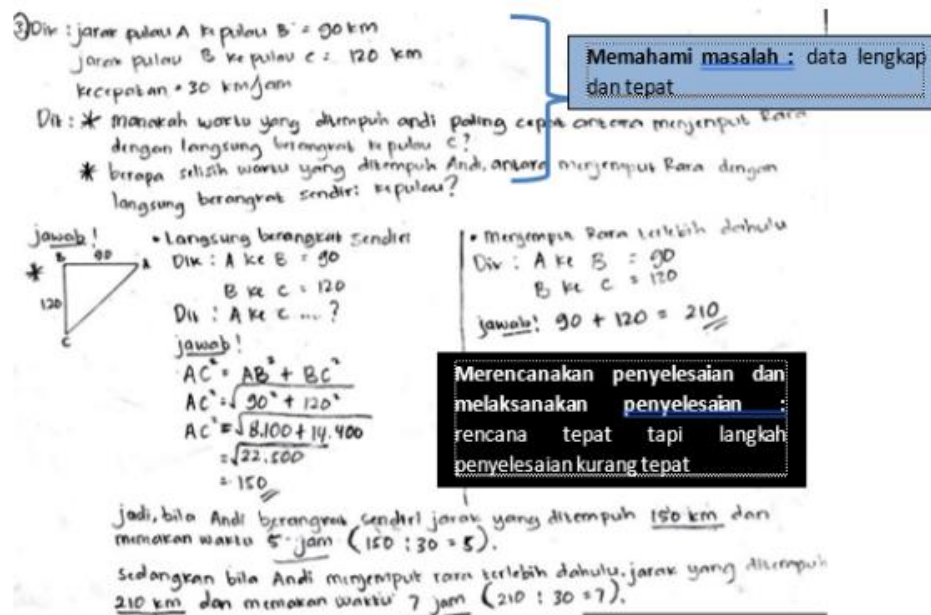 ③ Dik : jarak pulau A ke pulau B = 90 km
jarak pulau B ke pulau C = 120 km
kecepatan = 30 km/jam
Dit : * manakah waktu yang ditempuh andi paling cepat antara menjemput Rara
dengan langsung berangkat ke pulau C?
* berapa selisih waktu yang ditempuh Andi, antara menjemput Rara dengan
langsung berangkat sendiri ke pulau?
Memahami masalah : data lengkap
dan tepat
jawab !
*
B 90 A
120
C
• Langsung berangkat sendiri
Dik : A ke B = 90
B ke C = 120
Dit : A ke C ... ?
jawab !
AC² = AB² + BC²
AC² = √90² + 120²
AC² = √8.100 + 14.400
= √22.500
= 150
• menjemput Rara terlebih dahulu
Dik : A ke B = 90
B ke C = 120
jawab! 90 + 120 = 210
Merencanakan penyelesaian dan
melaksanakan penyelesaian :
rencana tepat tapi langkah
penyelesaian kurang tepat
jadi, bila Andi berangkat sendiri jarak yang ditempuh 150 km dan
memakan waktu 5 jam (150 : 30 = 5).
Sedangkan bila Andi menjemput rara terlebih dahulu, jarak yang ditempuh
210 km dan memakan waktu 7 jam (210 : 30 = 7).